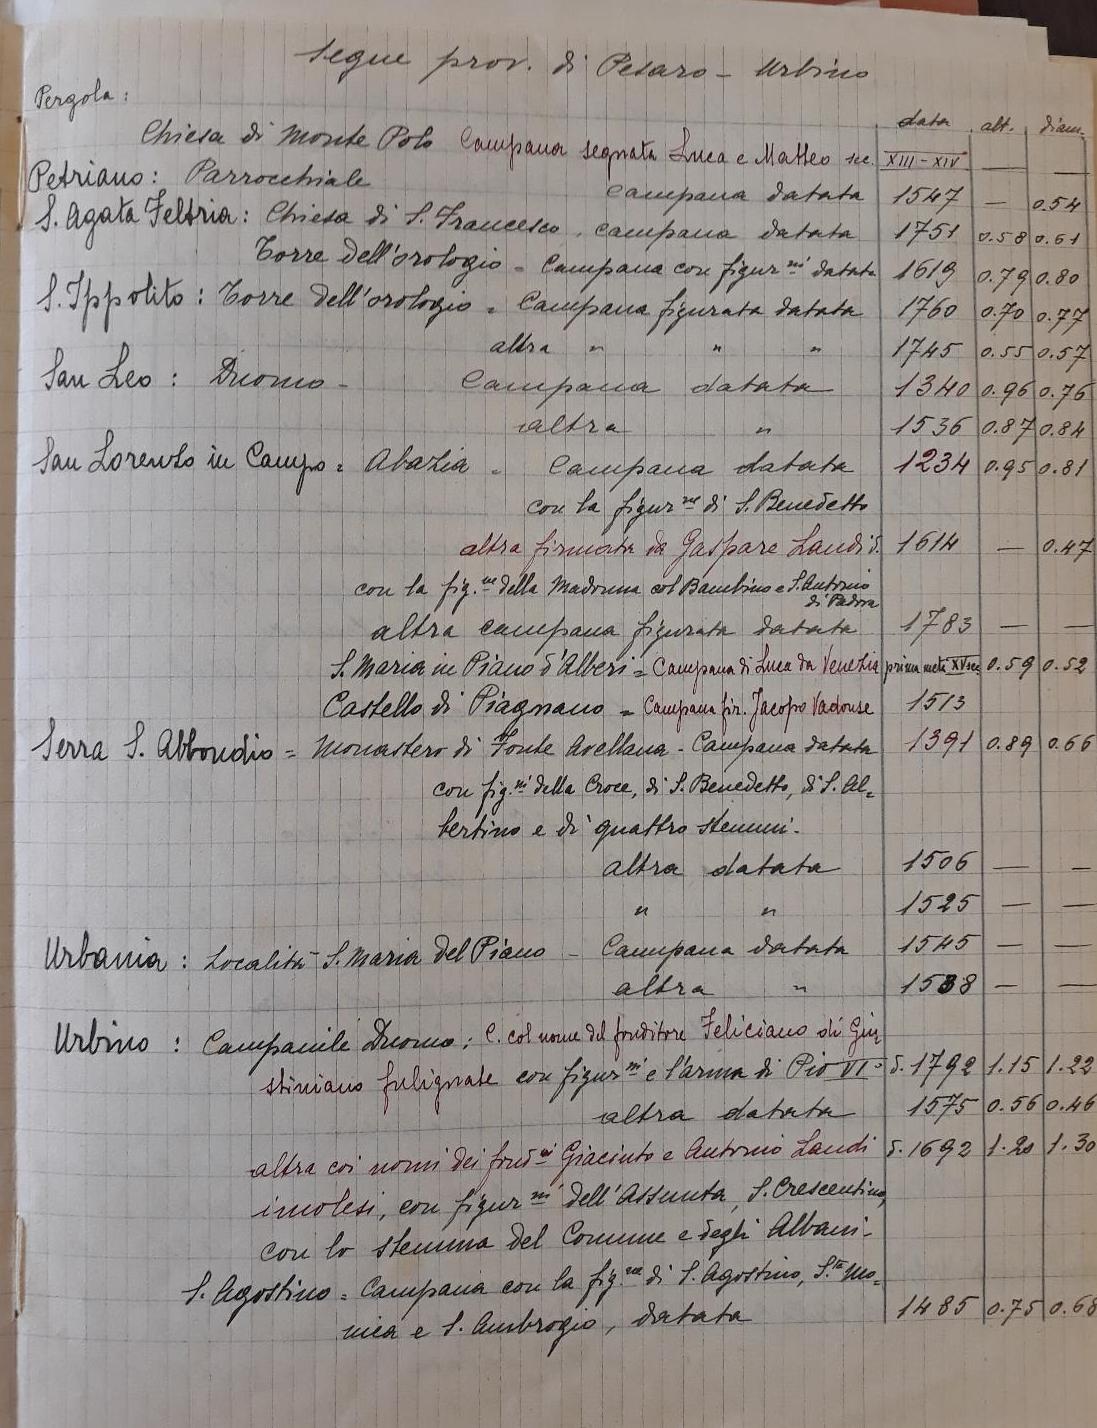 Segue prov. di Pesaro - Urbino
Pergola:
data alt. diam.
Chiesa di Monte Polo Campana segnata Luca e Matteo sec. XIII-XIV — —
Petriano: Parrocchiale Campana datata 1547 — 0.54
S. Agata Feltria: Chiesa di S. Francesco. campana datata 1751 0.58 0.61
Torre dell'orologio = Campana con figur.ni datata 1619 0.79 0.80
S. Ippolito: Torre dell'orologio = Campana figurata datata 1760 0.70 0.77
altra " " " 1745 0.55 0.57
San Leo: Duomo - Campana datata 1340 0.96 0.76
altra " 1536 0.87 0.84
San Lorenzo in Campo = Abazia = Campana datata 1234 0.95 0.81
con la figur.ne di S. Benedetto
altra firmata da Gaspare Landi d. 1614 — 0.47
con la fig.ne della Madonna col Bambino e S. Antonio
di Padova
altra campana figurata datata 1783 — —
S. Maria in Piano d'Alberi = Campana di Luca da Venezia prima metà XV sec. 0.59 0.52
Castello di Piagnano = Campana fir. Jacopo Vadonse 1513
Serra S. Abbondio = Monastero di Fonte Avellana - Campana datata 1391 0.89 0.66
con fig.ni della Croce, di S. Benedetto, di S. Al=
bertino e di quattro stemmi.
altra datata 1506 — —
" " 1525 — —
Urbania: Località S. Maria del Piano - Campana datata 1545 — —
altra " 1538 — —
Urbino: Campanile Duomo: C. col nome del fonditore Feliciano di Giu
stiniano fulignate con figur.ni e l'arma di Pio VI= d. 1792 1.15 1.22
altra datata 1575 0.56 0.46
altra coi nomi dei fond.ri Giacinto e Antonio Landi d. 1692 1.20 1.30
imolesi, con figur.ni dell'Assunta, S. Crescentino,
con lo stemma del Comune e degli Albani.
S. Agostino = Campana con la fig.ne di S. Agostino, S.ta Mo=
nica e S. Ambrogio, datata 1485 0.75 0.68